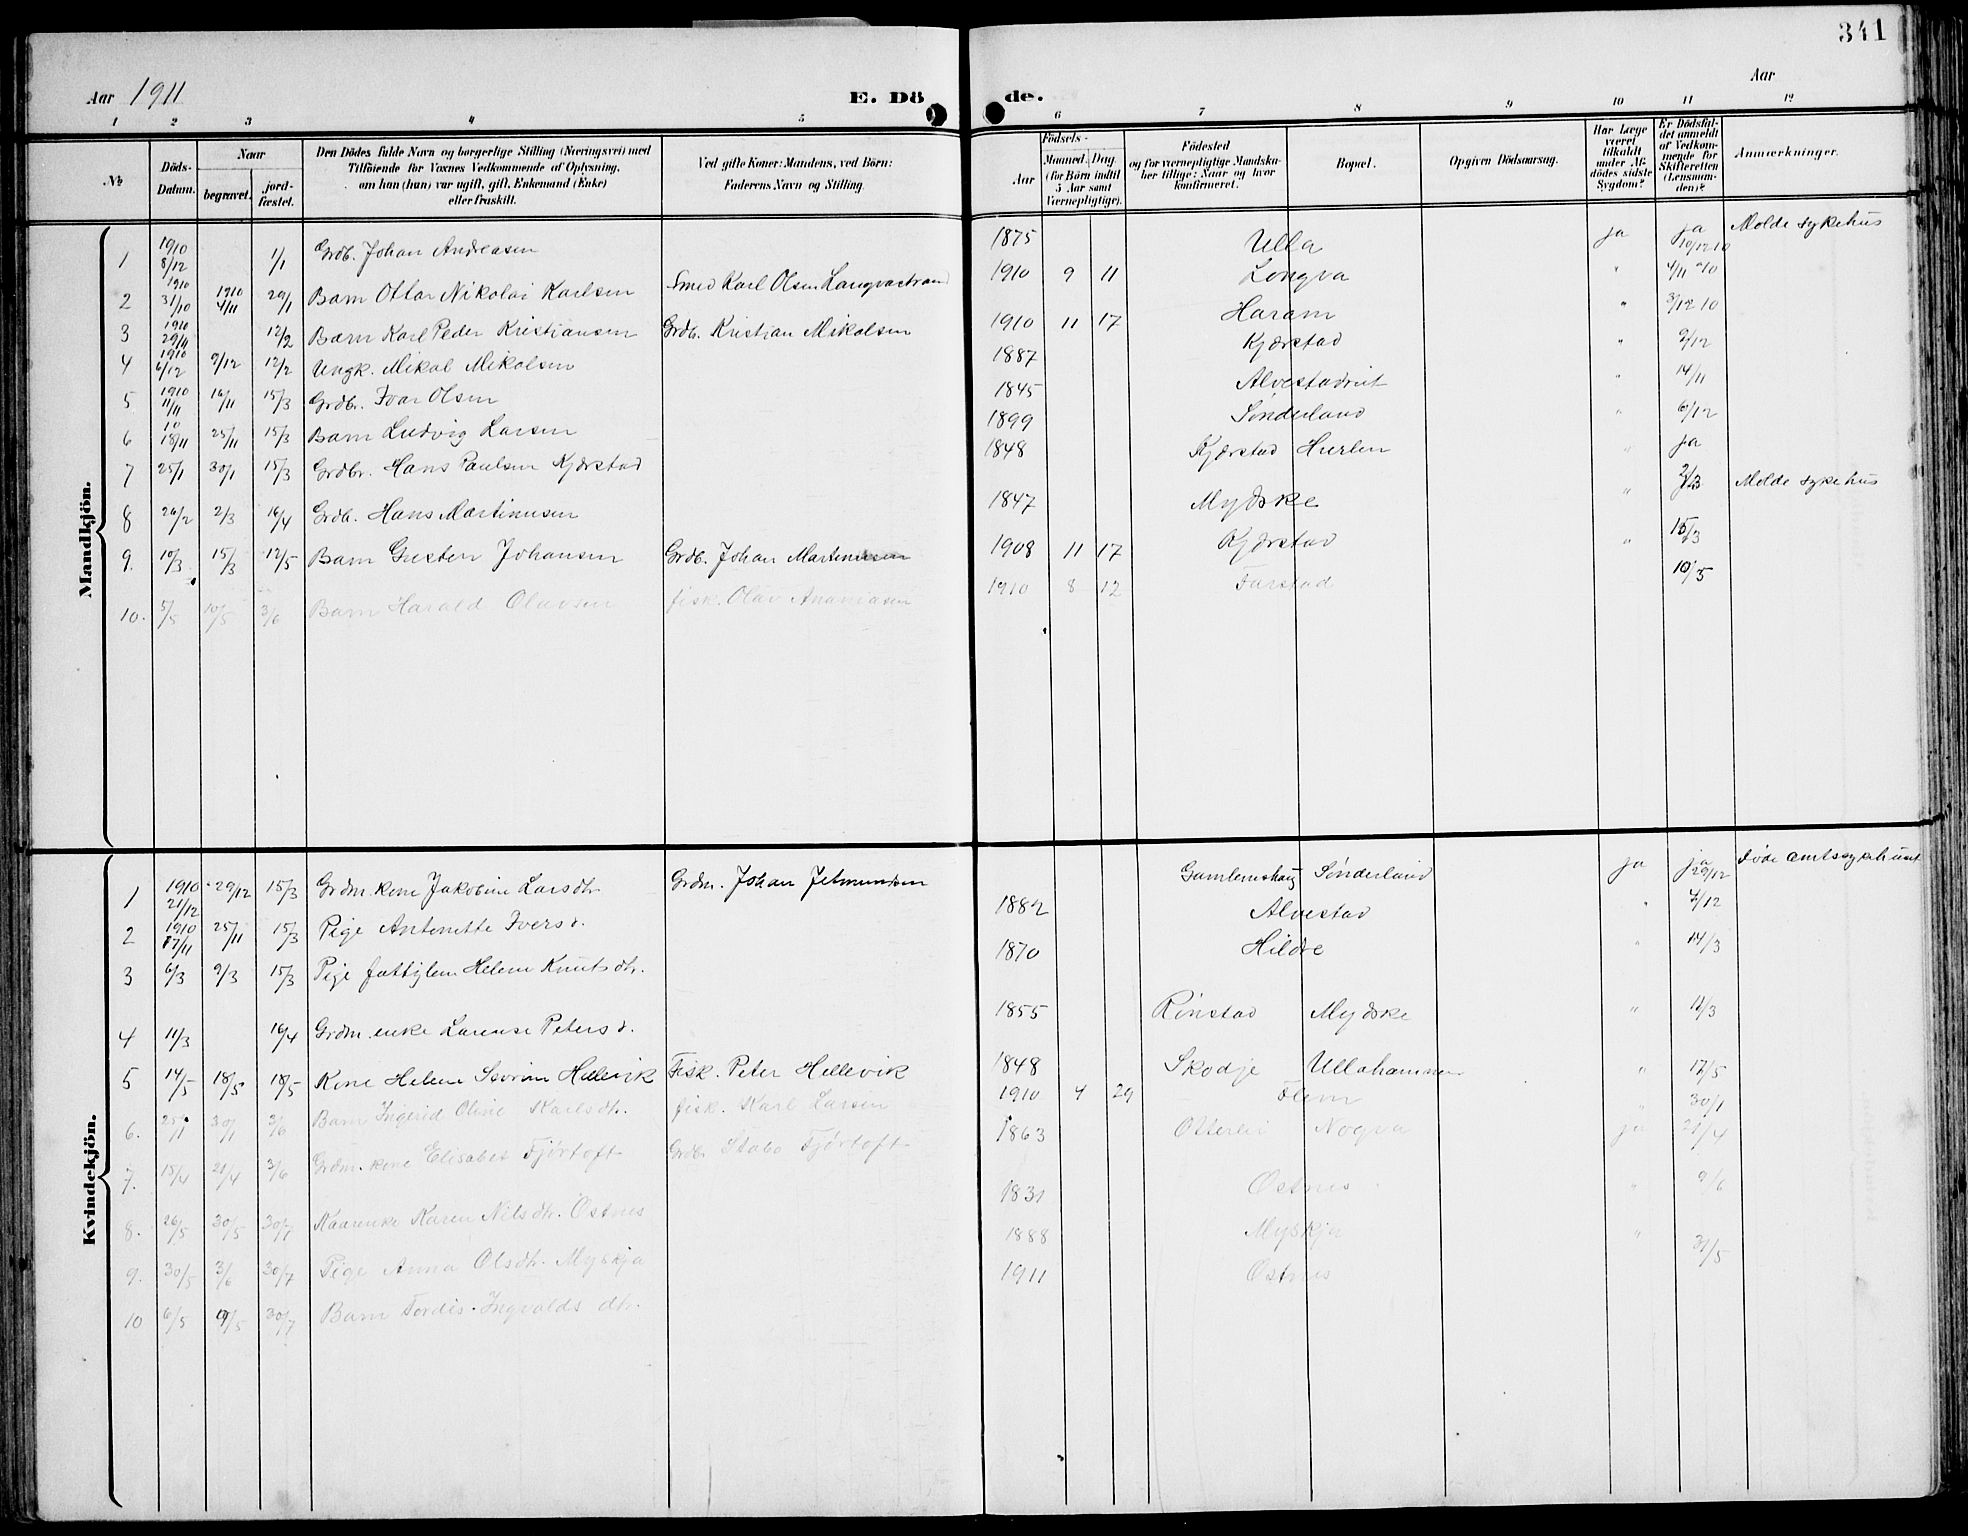 341
Aar 1911
E. Dö de.
Aar
1 2 3 4 5 6 7 8 9 10 11 12
№
Döds-Datum.
Naar
begravet.
jord-fæstet.
Den Dödes fulde Navn og borgerlige Stilling (Næringsvei) med Tilföiende for Voxnes Vedkommende af Oplysning, om han (hun) var ugift, gift, Enkemand (Enke) eller fraskilt.
Ved gifte Koner: Mandens, ved Börn: Faderens Navn og Stilling.
Födsels-
Aar
Maaned. Dag.
(for Börn indtil 5 Aar samt Værnepligtige).
Födested og for værnepligtige Mandska-ber tillige: Naar og hvor konfirmeret.
Bopæl.
Opgiven Dödsaarsag.
Har Læge været tilkaldt under Af-dödes sidste Sygdom?
Er Dödsfal-det anmeldt af Vedkom-mende for Skifteretten (Lensman-den)?
Anmærkninger.
Mandkjön.
1 1910 8/12 1/1 Grdb. Johan Andreasen 1875 Ulla ja ja 10/12 10 Molde sykehus
2 1910 31/10 1910 4/11 29/1 Barn Ottar Nikolai Karlsen Smed Karl Olsen Longvastrand 1910 9 11 Longva " 4/11 10
3 1910 29/11 12/2 Barn Karl Peder Kristiansen Grdb. Kristian Mikalsen 1910 11 17 Haram " 3/12 10
4 1910 6/12 9/12 12/2 Ungk. Mikal Mikalsen 1887 Kjærstad " 9/12
5 1910 11/11 16/11 15/3 Grdbr. Ivar Olsen 1845 Alvestad " 14/11
6 10 18/11 25/11 15/3 Barn Ludvig Larsen 1899 Sønderland " 6/12
7 25/1 30/1 15/3 Grdbr. Hans Paulsen Kjærstad 1848 Kjærstad Hurlen " ja
8 26/2 2/3 16/4 Grdb. Hans Martinusen 1847 Mydske " 2/3 Molde sykehus
9. 10/3 15/3 12/5 Barn Gusten Johansen Grdb. Johan Martinusen 1908 11 17 Kjærstad " 15/3
10. 5/5 10/5 3/6 Barn Harald Olavsen fisk. Olav Ananiasen 1910 8 12 Farstad 10/5
Kvindekjön.
1 1910 21/12 29/12 15/3 Grdm. kone Jakobine Larsdtr. Grdm. Johan Jetmundsen 1882 Gamlemshaug Sønderland ja ja 29/12 Døde amtssykehuset
2 1910 17/11 25/11 15/3 Pige Antonette Iversd. 1870 Alvestad " 7/12
3 6/3 9/3 15/3 Pige fattiglem Helene Knutsdtr. Hildre " 14/3
4 11/3 16/4 Grdm. enke Larense Petersd. 1855 Rønstad Mydske " 12/3
5 14/5 18/5 18/5 Kone Helene Hellevik Fisk. Peter Hellevik 1848 Skodje Ullahammen " 17/5
6. 25/1 30/1 3/6 Barn Ingerid Oline Karlsdtr. fisk. Karl Larsen 1910 4 29 Flem " 30/1
7. 15/4 21/4 3/6 Grdm. kone Elisabet Fjørtoft Grdb. Fjørtoft 1863 Otterlei Nogva ja 21/4
8. 26/5 30/5 30/7 Kaarenke Karen Nilsdtr. Østnes 1831 Østnes " 9/6
9. 30/5 3/6 30/7 Pige Anna Olsdtr. Myskja 1888 Myskja " 31/5
10 6/5 9/5 30/7 Barn Tordis Ingvaldsdtr. 1911 Østnes